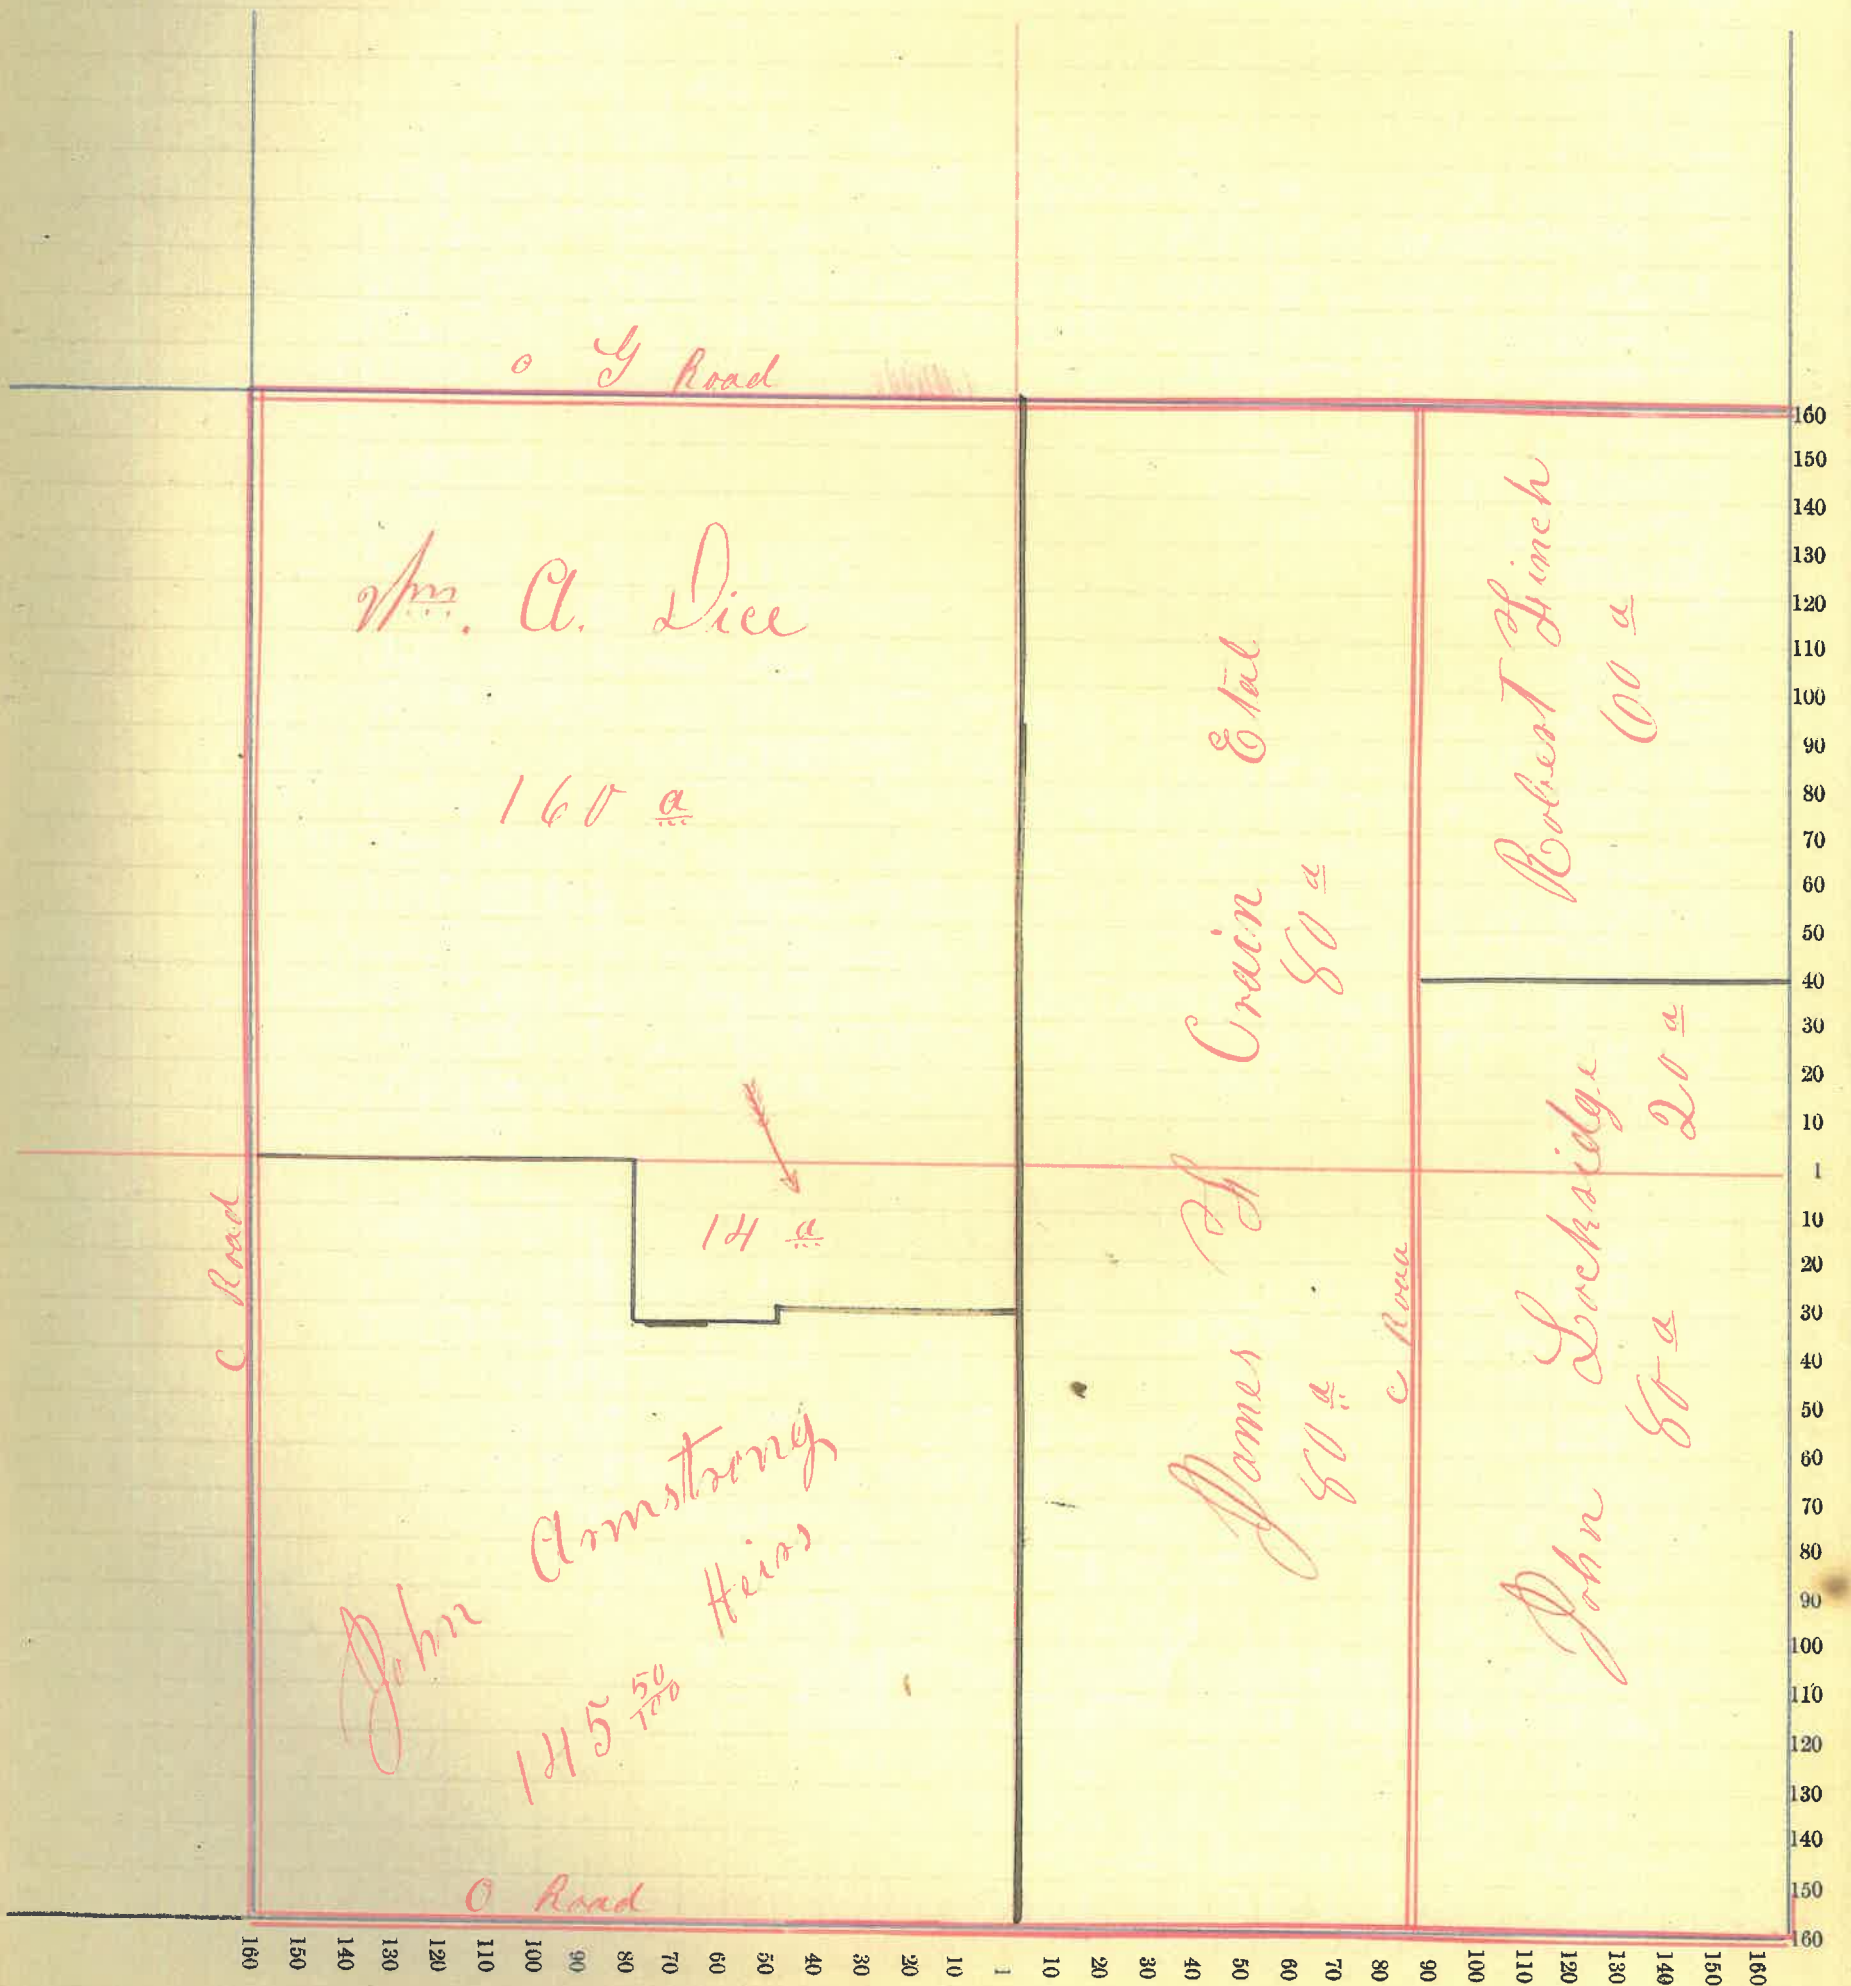 o G Road
Wm. A. Dice
160 a
14 a
C Road
John Armstrong
Heirs
145 50/100
O Road
James F Crain Etal
80 a
80 a
C Road
Robert Finch
60 a
John Locksidge
20 a
80 a
160
150
140
130
120
110
100
90
80
70
60
50
40
30
20
10
1
10
20
30
40
50
60
70
80
90
100
110
120
130
140
150
160
160 150 140 130 120 110 100 90 80 70 60 50 40 30 20 10 1 10 20 30 40 50 60 70 80 90 100 110 120 130 140 150 160